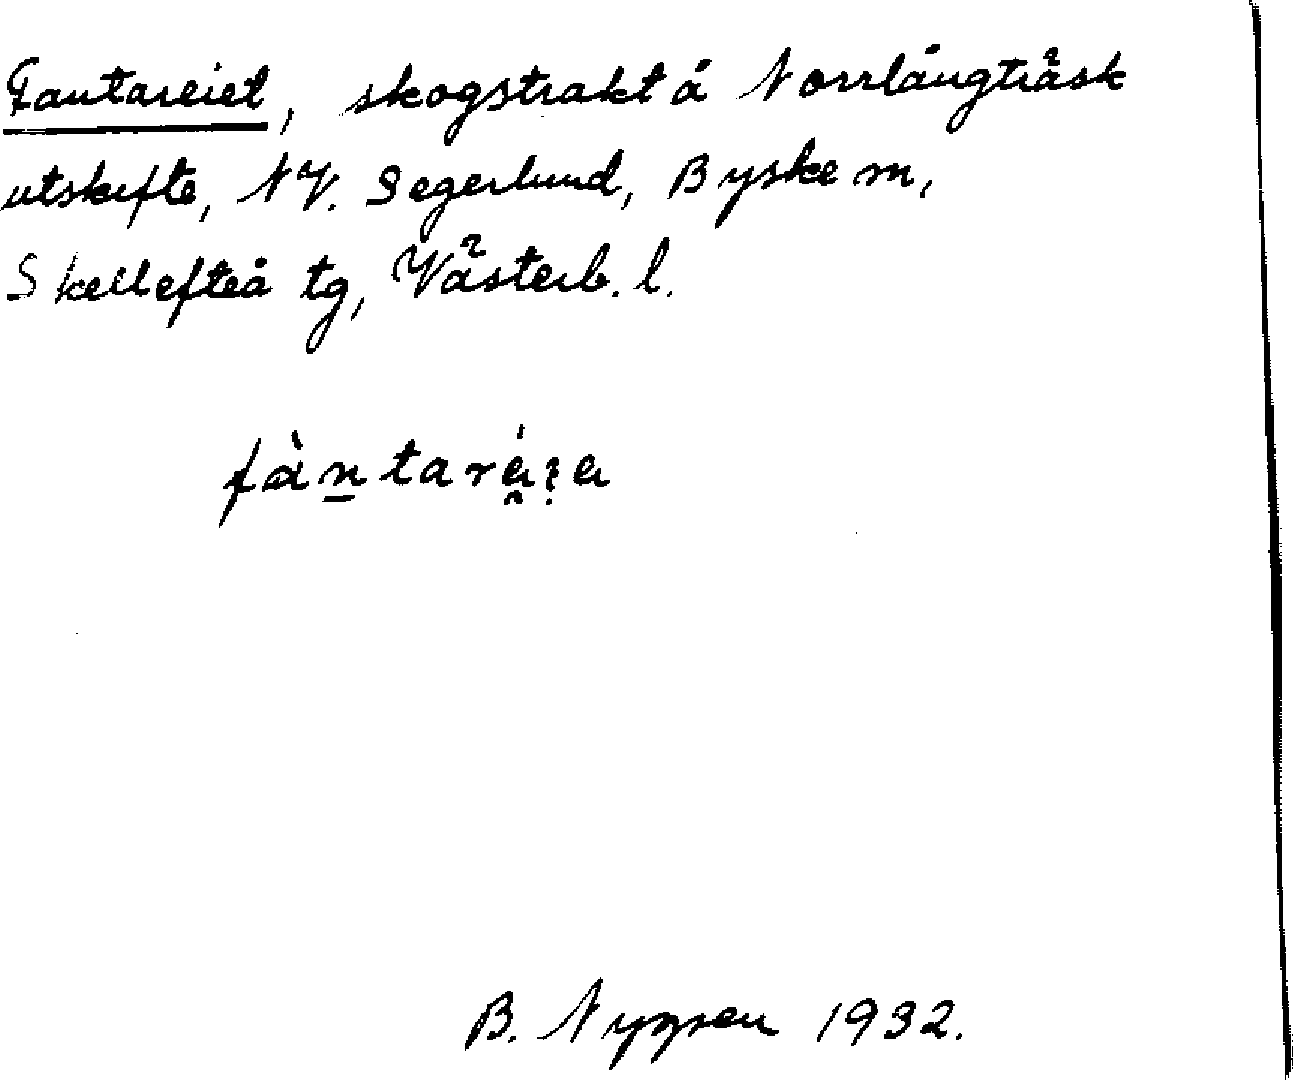 Fantareiet, skogstrakt å Norrlångträsk
utskifte, NV. Segerlund, Byske sn,
Skellefteå tg, Västerb. l.
fàn̲tará̯ɩ̣a
B. Nygren 1932.